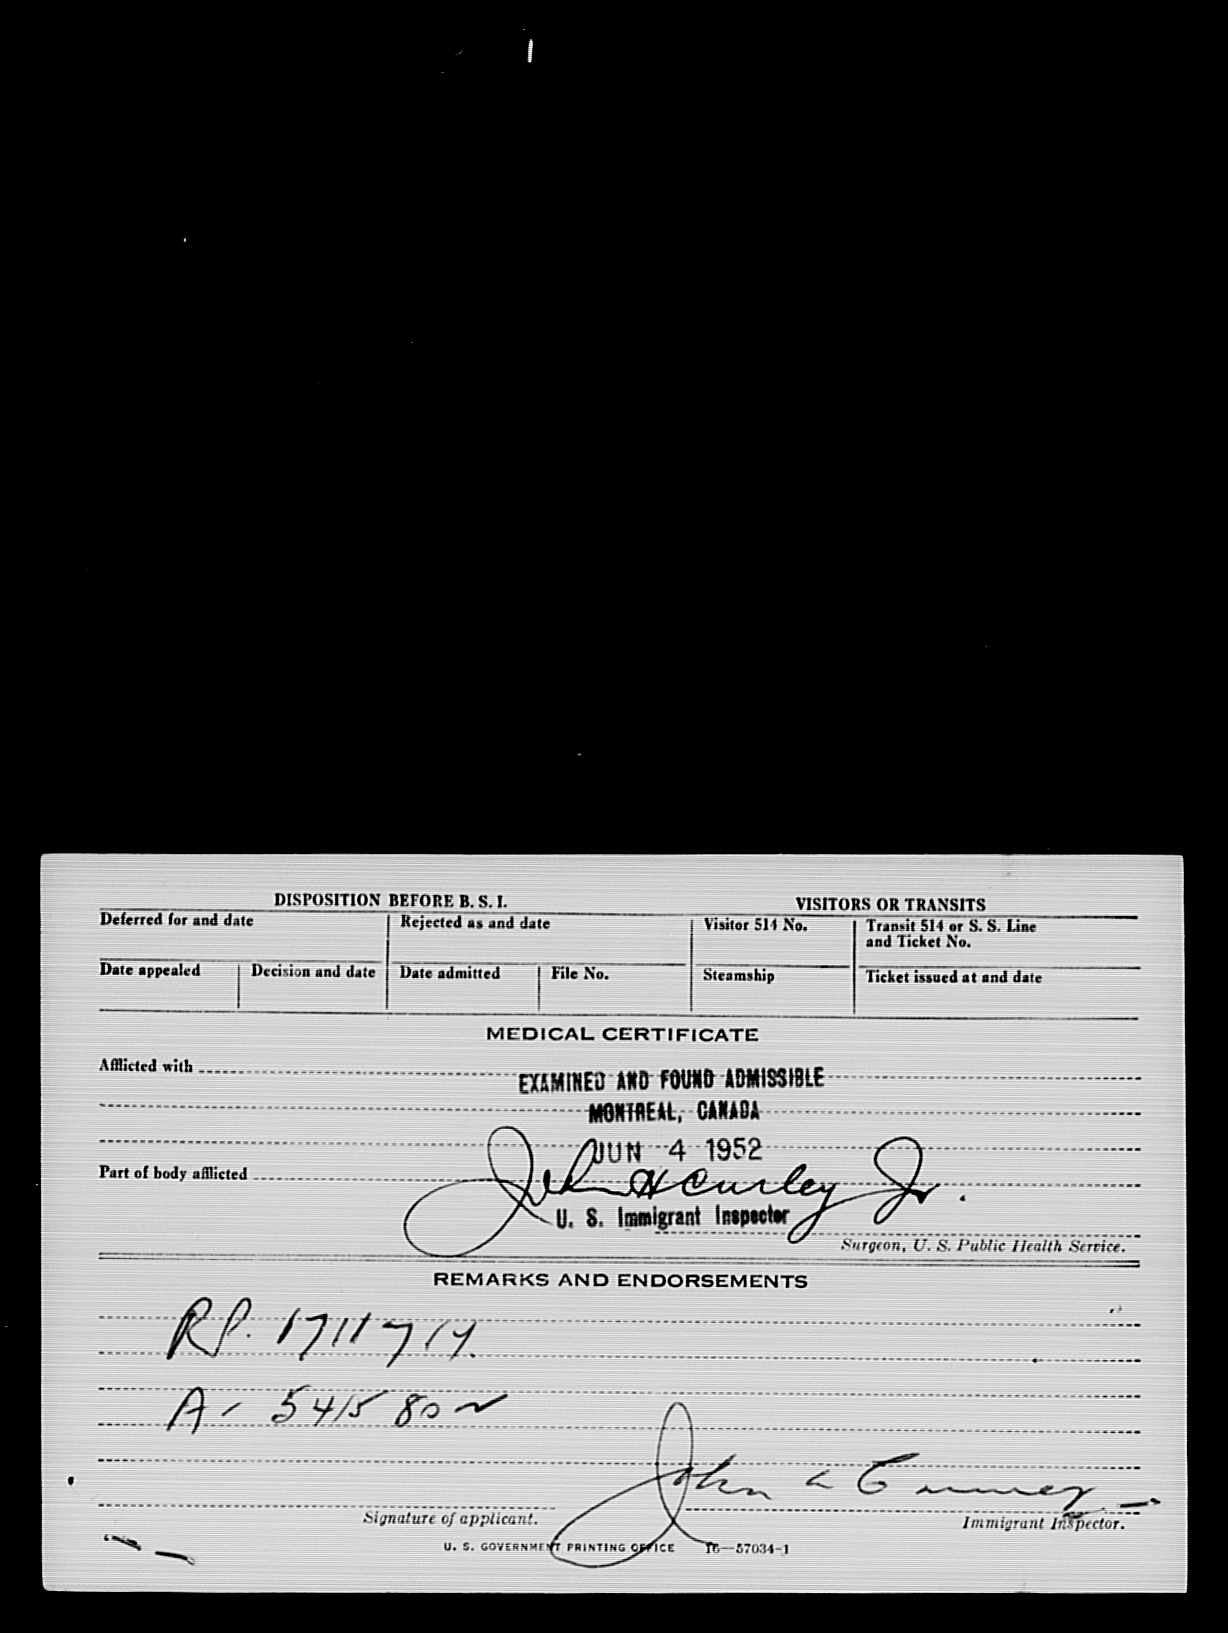 DISPOSITION BEFORE B. S. I.
VISITORS OR TRANSITS
Deferred for and date
Rejected as and date
Visitor 514 No.
Transit 514 or S. S. Line
and Ticket No.
Date appealed
Decision and date
Date admitted
File No.
Steamship
Ticket issued at and date
MEDICAL CERTIFICATE
Afflicted with
EXAMINED AND FOUND ADMISSIBLE
MONTREAL, CANADA
JUN 4 1952
Part of body afflicted
John H Curley Jr.
U. S. Immigrant Inspector
Surgeon, U. S. Public Health Service.
REMARKS AND ENDORSEMENTS
RP. 1711714.
A- 5415 80
John
Signature of applicant.
Immigrant Inspector.
U. S. GOVERNMENT PRINTING OFFICE 16—57034-1